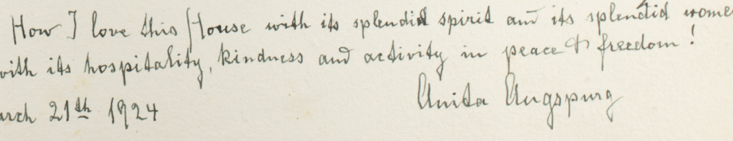 How I love this House with its splendid spirit and its splendid wome
with its hospitality, kindness and activity in peace & freedom!
arch 21th 1924
Anita Augspurg